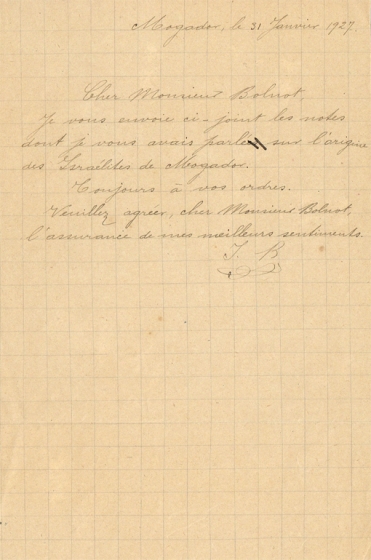 Mogador, le 31 Janvier 1927.
Cher Monsieur Bolnot,
Je vous envoie ci-joint les notes
dont je vous avais parlé sur l'origine
des Israélites de Mogador.
Toujours à vos ordres.
Veuillez agréer, cher Monsieur Bolnot,
l'assurance de mes meilleurs sentiments.
J. B